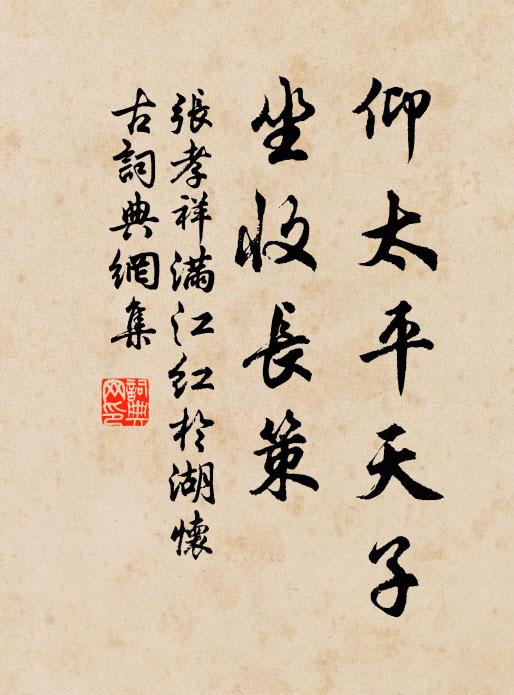 仰太平天子
坐收長策
張孝祥滿江紅於湖懷
古詞典網集
詞典
网印